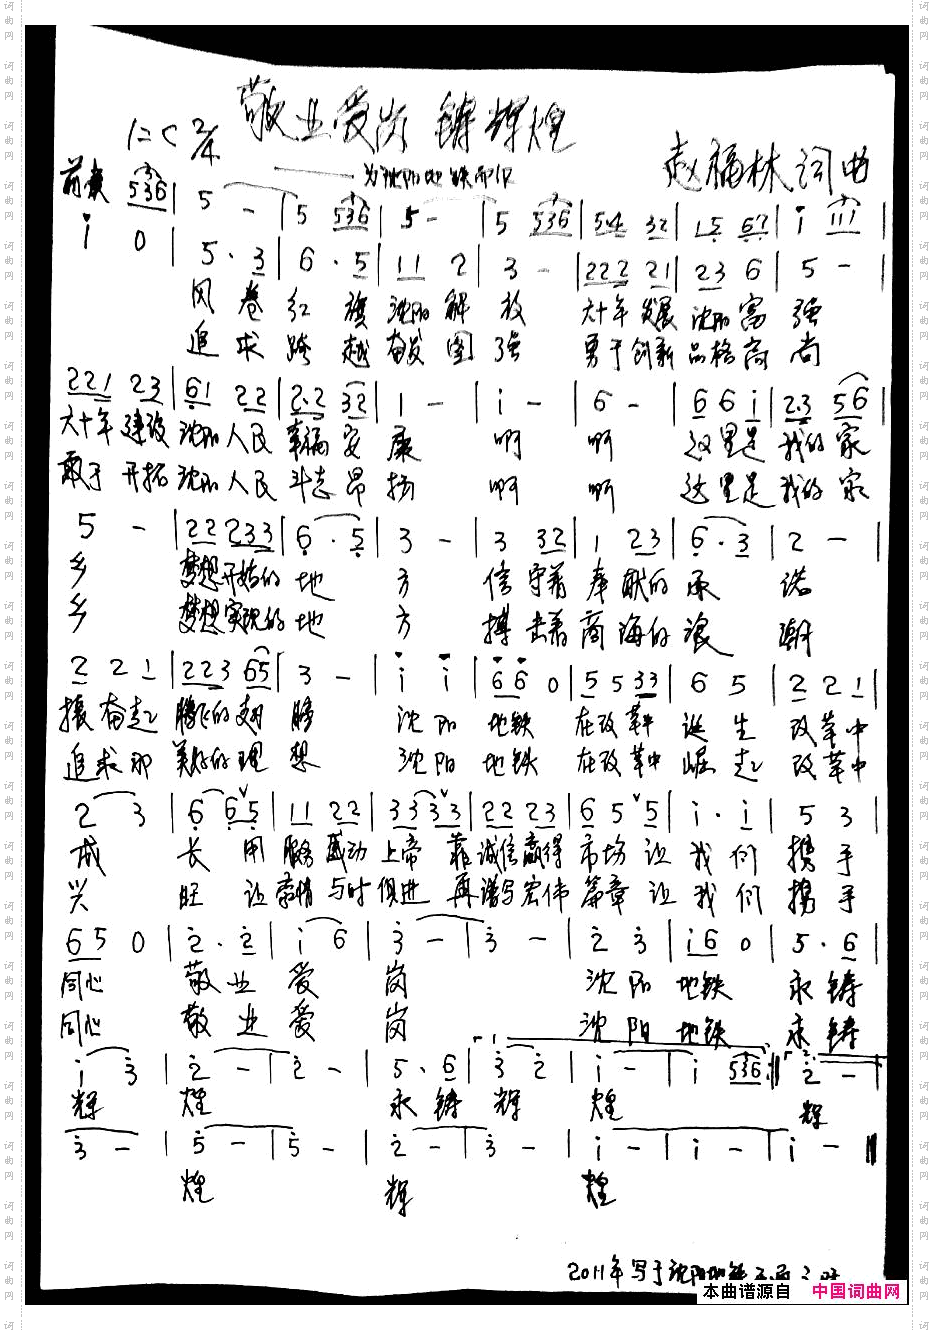 敬业爱岗 铸辉煌
1=C 2/4
——为沈阳地铁而作
赵福林 词曲
前奏 536 | 5 - | 5 536 | 5 - | 5 536 | 54 32 | 15 67 | i iii |
i 0 | 5 · 3 | 6 · 5 | 11 2 | 3 - | 222 21 | 23 6 | 5 - |
风 卷 红 旗 沈阳 解 放 六十年 发展 沈阳 富 强
追 求 跨 越 奋发 图 强 勇于 创新 品格 高 尚
221 23 | 61 22 | 2·2 32 | 1 - | i - | 6 - | 6 6 i | 2·3 56 |
六十年 建设 沈阳 人民 幸福 安 康 啊 啊 这里是 我的 家
敢于 开拓 沈阳 人民 斗志 昂 扬 啊 啊 这里是 我的 家
5 - | 22 233 | 6 · 5 | 3 - | 3 32 | 1 23 | 6 · 3 | 2 - |
乡 梦想 开始的 地 方 信 守着 奉 献的 承 诺
乡 梦想 实现的 地 方 搏 击着 商 海的 浪 潮
2 2 1 | 223 65 | 3 - | i i | 66 0 | 5 5 33 | 6 5 | 2 2 1 |
振 奋起 腾飞的 翅 膀 沈 阳 地铁 在改 革中 诞 生 改革中
追求那 美好的 理 想 沈 阳 地铁 在改 革中 崛 起 改革中
2 3 | 6 65 | 11 22 | 33 33 | 22 23 | 6 5 5 | i · i | 5 3 |
成 长 用 服务 感动 上帝 靠 诚信 赢得 市场 让 我 们 携 手
兴 旺 让 豪情 与时 俱进 再 谱写 宏伟 篇章 让 我 们 携 手
65 0 | 2 · 2 | i 6 | 3 - | 3 - | 2 3 | i6 0 | 5 · 6 |
同心 敬 业 爱 岗 沈 阳 地铁 永 铸
同心 敬 业 爱 岗 沈 阳 地铁 永 铸
i 3 | 2 - | 2 - | 5 · 6 | 3 2 | i - | i 536 :‖ 2 - |
辉 煌 永 铸 辉 煌 辉
3 - | 5 - | 5 - | 2 - | 3 - | i - | i - | i - ‖
煌 辉 煌
2011年 写于沈阳地铁
本曲谱源自 中国词曲网
词曲网